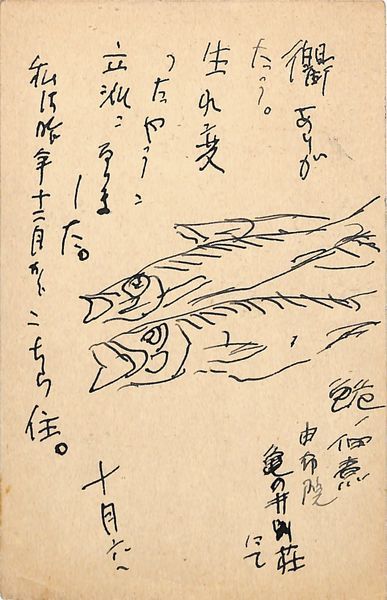 ありが
たう。
生れ変
つたやうに
立派になりま
した。
私は昨年十二月からこちら住。
十月六
鮑ノ佃煮
由布院
亀の井別荘
にて